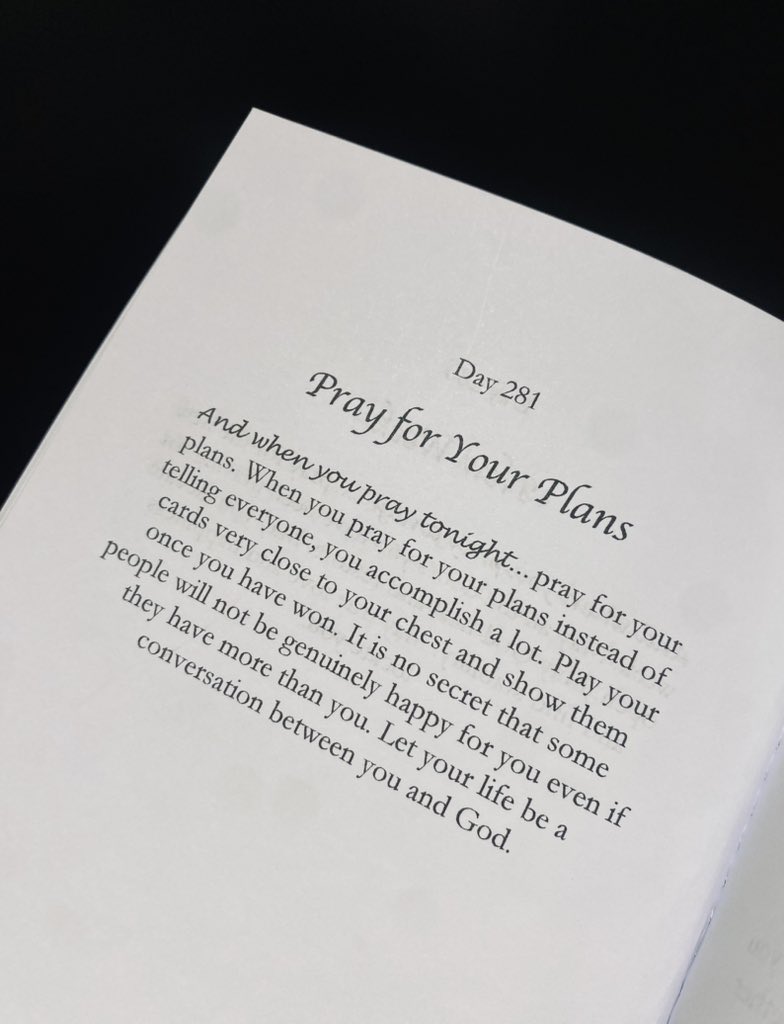 Day 281
Pray for Your Plans
And when you pray tonight... pray for your
plans. When you pray for your plans instead of
telling everyone, you accomplish a lot. Play your
cards very close to your chest and show them
once you have won. It is no secret that some
people will not be genuinely happy for you even if
they have more than you. Let your life be a
conversation between you and God.